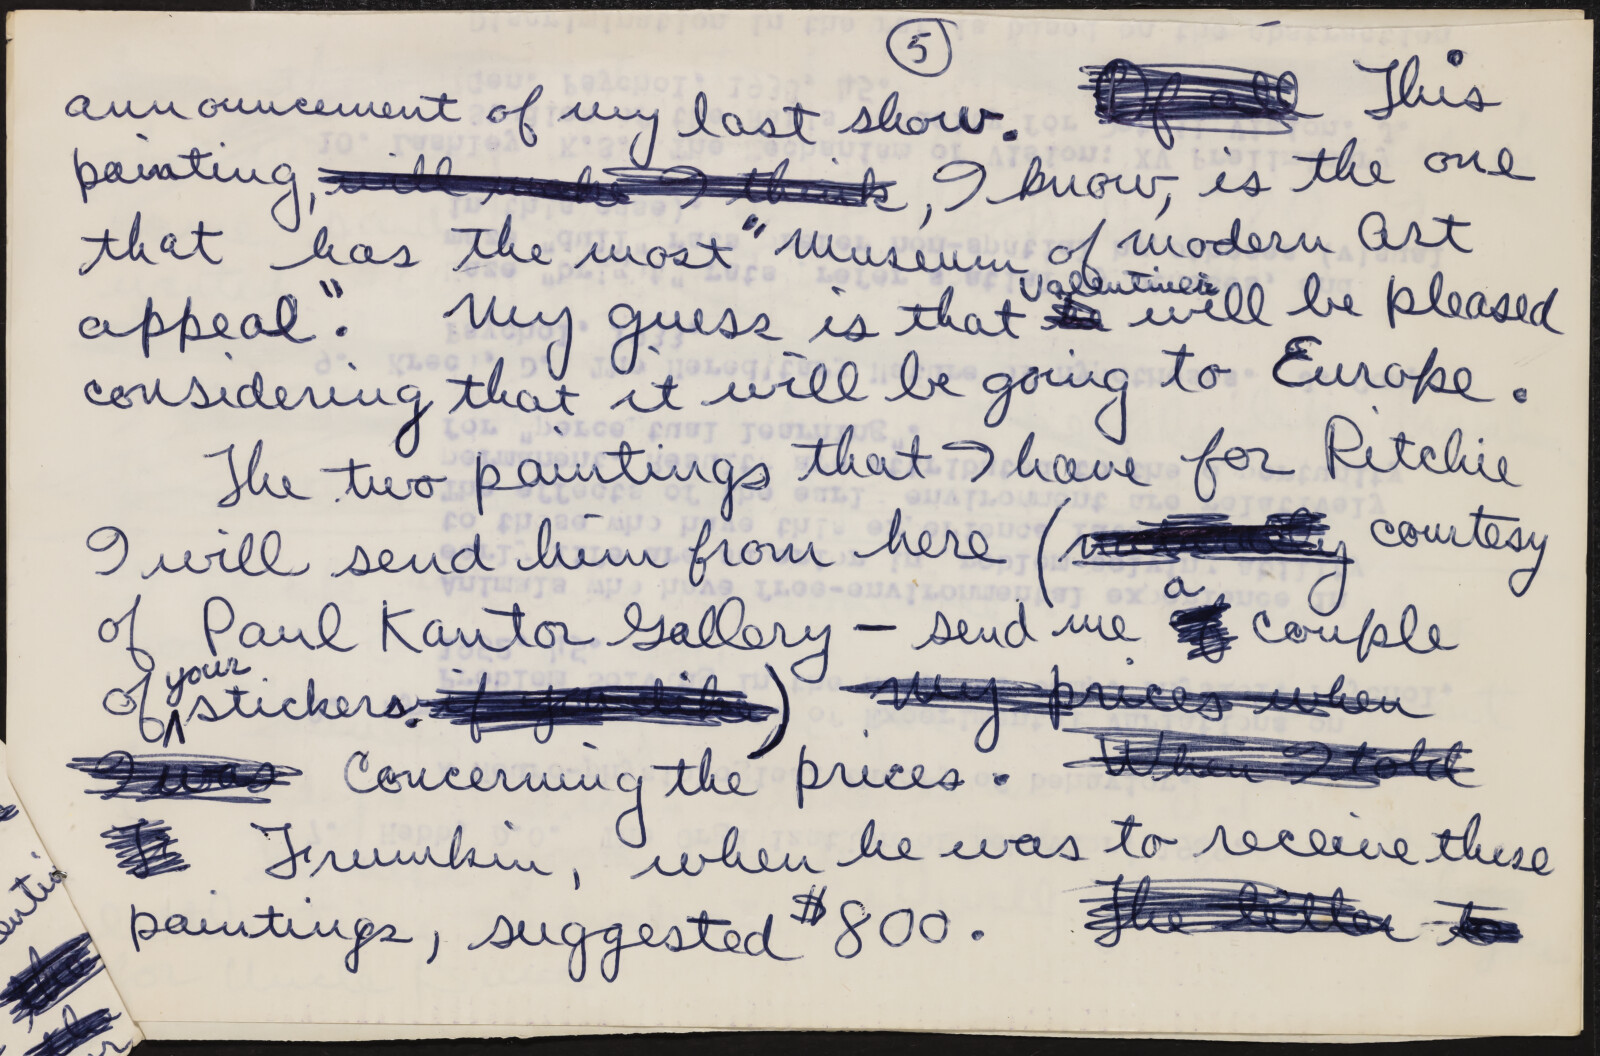 5
announcement of my last show. Of all This
painting, will make I think, I know, is the one
that has the most "Museum of modern Art
appeal". My guess is that Valentiner will be pleased
considering that it will be going to Europe.
The two paintings that I have for Ritchie
I will send him from here ( courtesy
of Paul Kantor Gallery – send me a couple
of your stickers. if you like) My prices when
I was Concerning the prices. When I told
Frumkin, when he was to receive these
paintings, suggested $800. The letter to